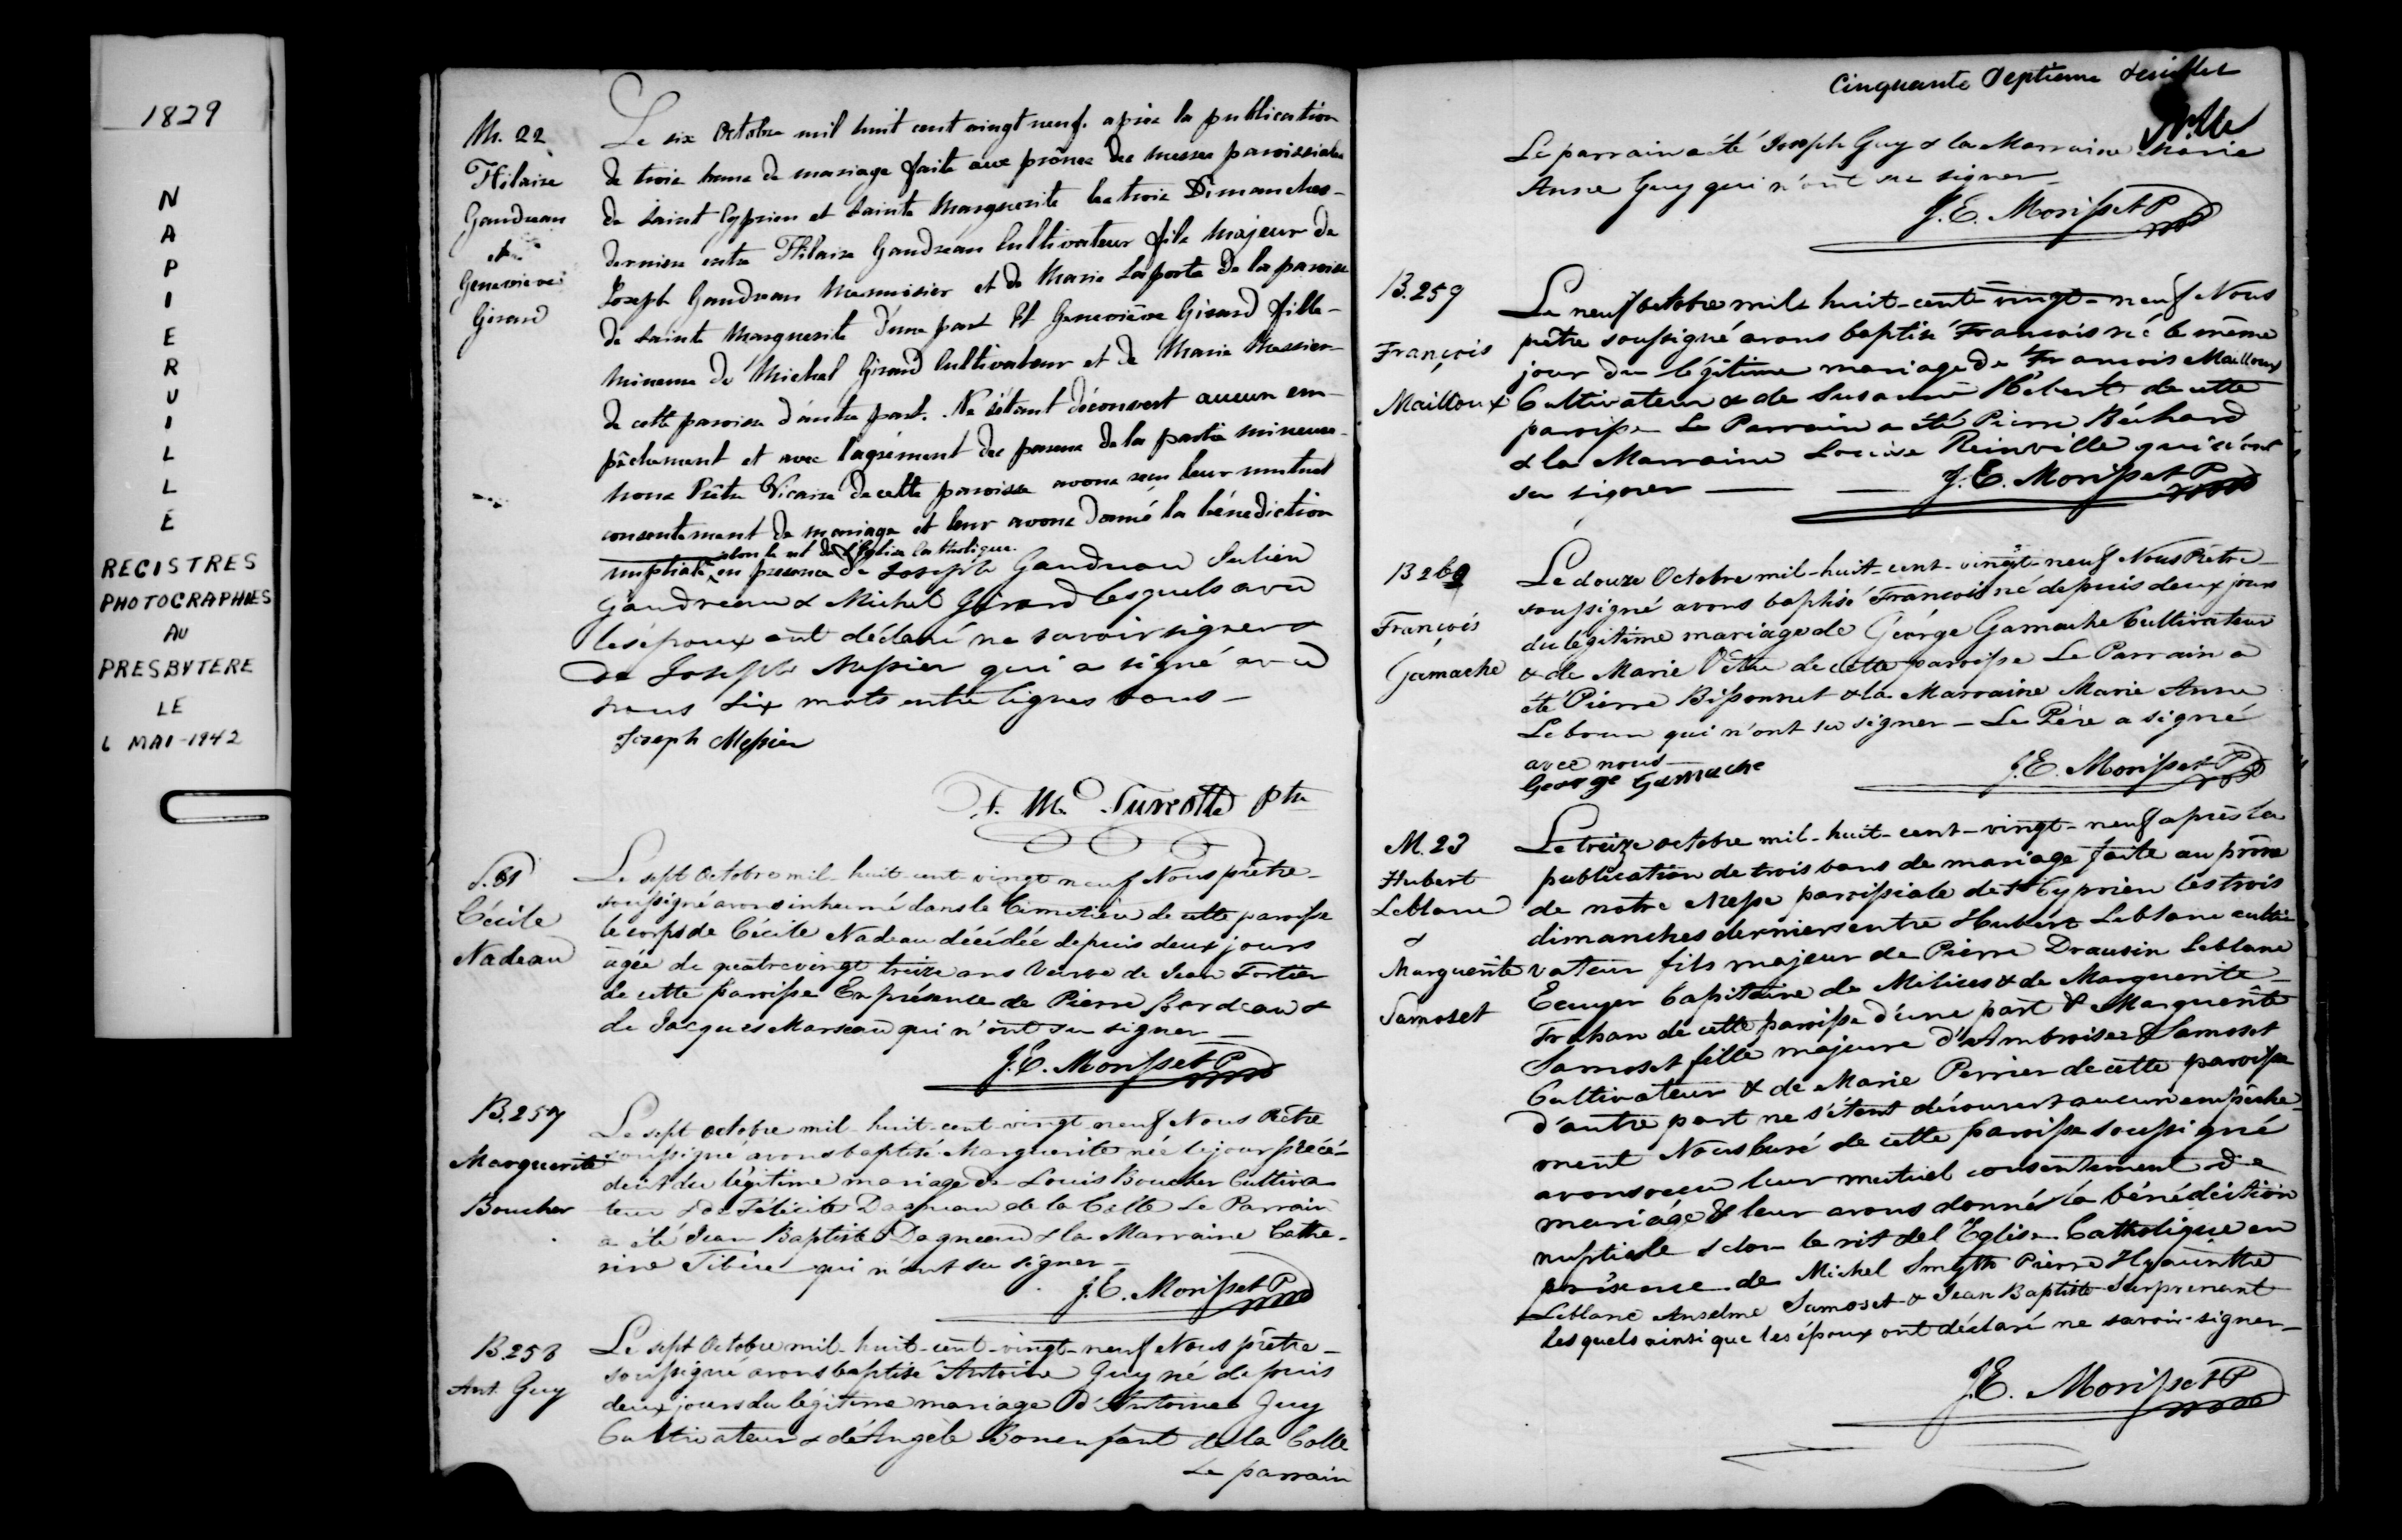 1829
NAPIERVILLE
REGISTRES
PHOTOGRAPHIES
AU
PRESBYTERE
LE
MAI-1942
M. 22
Hilaire
Gaudreau
et
Genevieve
Girard
Le six Octobre mil huit cent vingt neuf. après la publication
de trois bans de mariage faite aux prônes des messes paroissiales
de Saint Cyprien et Sainte Marguerite les trois Dimanches
derniers entre Hilaire Gaudreau Cultivateur fils Majeur de
Joseph Gaudreau Menuisier et de Marie Laporte de la paroisse
de Sainte Marguerite d'une part Et Geneviève Girard fille
mineure de Michel Girard Cultivateur et de Marie Messier
de cette paroisse d'autre part. Ne s'étant découvert aucun em-
pêchement et avec l'agrément des parens de la partie mineure
nous Prêtre Vicaire de cette paroisse avons reçu leur mutuel
consentement de mariage et leur avons donné la bénediction
selon le rit de l'Eglise Catholique.
nuptiale en presence de Joseph Gaudreau Julien
Gaudreau & Michel Girard lesquels avec
les époux ont déclaré ne savoir signer &
de Joseph Messier qui a signé avec
nous Six mots entre lignes bons —
Joseph Messier
F. M. Turcotte ptre
S. 81
Cécile
Nadeau
Le sept Octobre mil-huit-cent-vingt neuf Nous prêtre
soussigné avons inhumé dans le Cimetière de cette paroisse
le corps de Cécile Nadeau décédée depuis deux jours
agée de quatrevingt treize ans Veuve de Jean Fortier
de cette paroisse En présence de Pierre Bordeau &
de Jacques Marceau qui n'ont su signer —
J.E. Morisset P
B. 257
Marguerite
Boucher
Le sept octobre mil-huit-cent-vingt neuf Nous Prêtre
soussigné avons baptisé Marguerite née le jour précé-
dent du légitime mariage de Louis Boucher Cultiva
teur & de Félicite Dagneau de la Colle Le Parrain
a été Jean Baptiste Dagneau & la Marraine Cathe-
rine qui n'ont su signer —
J.E. Morisset P
B. 258
Ant. Guy
Le sept Octobre mil-huit-cent-vingt-neuf Nous prêtre
soussigné avons baptisé Antoine Guy né depuis
deux jours du légitime mariage d'Antoine Guy
Cultivateur & d'Angèle Bonenfant de la Colle
Le parrain
Cinquante Septieme feuillet
Le parrain a été Joseph Guy & la Marraine Marie
Anne Guy qui n'ont su signer —
J.E. Morisset P
B. 259
François
Mailloux
Le neuf octobre mil huit-cent-vingt-neuf Nous
prêtre soussigné avons baptisé François né le même
jour du légitime mariage de François Mailloux
Cultivateur & de Susanne Hébert de cette
paroisse Le Parrain a été Pierre Béchard
& la Marraine Louise Reinville qui n'ont
su signer —
J.E. Morisset P
B 260
François
Gamache
Le douze Octobre mil-huit-cent-vingt-neuf Nous Prêtre
soussigné avons baptisé François né depuis deux jours
du légitime mariage de George Gamache Cultivateur
& de Marie de cette paroisse Le Parrain a
été Pierre Bissonnet & la Marraine Marie Anne
Lebrun qui n'ont su signer — Le Père a signé
avec nous —
George Gamache
J.E. Morisset P
M. 23
Hubert
Leblanc
&
Marguerite
Samoset
Le treize octobre mil-huit-cent-vingt-neuf après la
publication de trois bans de mariage faite au prône
de notre Messe paroissiale de St Cyprien les trois
dimanches derniers entre Hubert Leblanc culti
vateur fils majeur de Pierre Drausin Leblanc
Ecuyer Capitaine de Milices & de Marguerite
Trahan de cette paroisse d'une part & Marguerite
Samoset fille majeure d'Ambroise Samoset
Cultivateur & de Marie Perrier de cette paroisse
d'autre part ne s'étant découvert aucun empêche-
ment Nous Curé de cette paroisse soussigné
avons reçu leur mutuel consentement de
mariage & leur avons donné la bénédiction
nuptiale selon le rit de l'Eglise Catholique en
présence de Michel Smyth Pierre Hyacinthe
Leblanc Anselme Samoset & Jean Baptiste Surprenant
lesquels ainsi que les époux ont déclaré ne savoir signer —
J.E. Morisset P